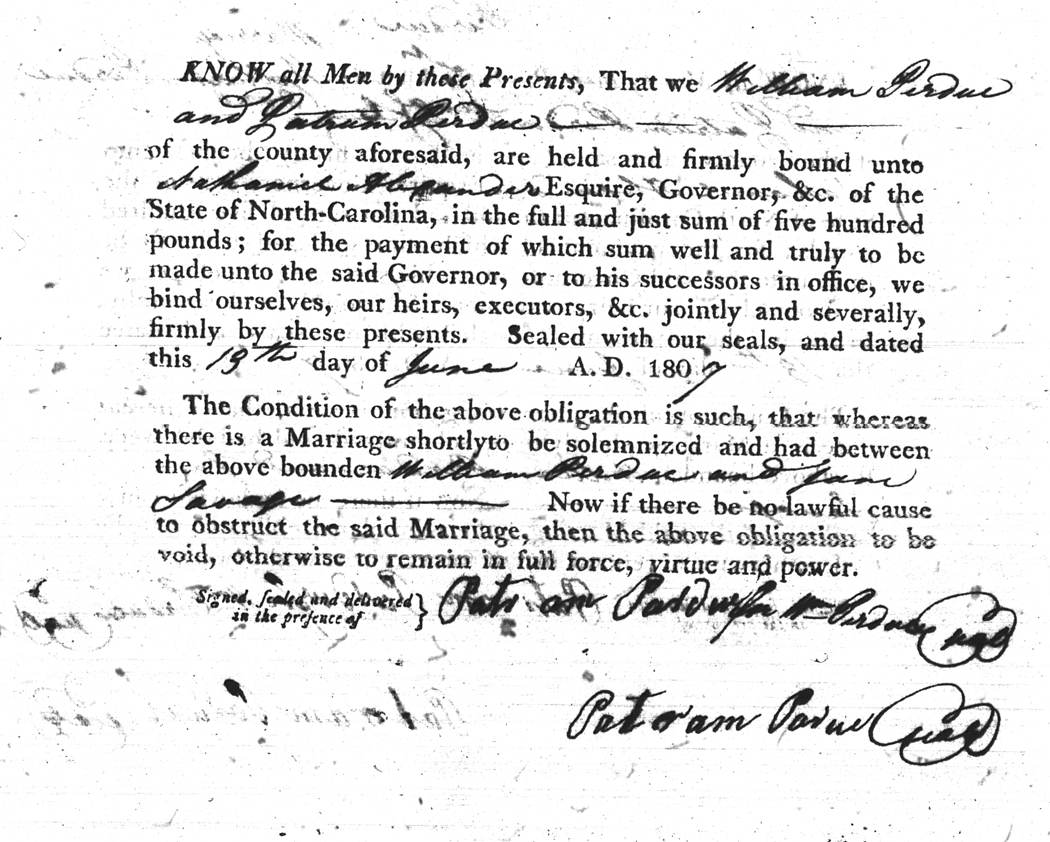 KNOW all Men by these Presents, That we William Perdue
and Patram Perdue
of the county aforesaid, are held and firmly bound unto
Nathaniel Alexander Esquire, Governor, &c. of the
State of North-Carolina, in the full and just sum of five hundred
pounds; for the payment of which sum well and truly to be
made unto the said Governor, or to his successors in office, we
bind ourselves, our heirs, executors, &c. jointly and severally,
firmly by these presents. Sealed with our seals, and dated
this 19th day of June A. D. 1807
The Condition of the above obligation is such, that whereas
there is a Marriage shortlyto be solemnized and had between
the above bounden William Perdue and Jane
Savage Now if there be no lawful cause
to obstruct the said Marriage, then the above obligation to be
void, otherwise to remain in full force, virtue and power.
Signed, sealed and delivered } Patram Pardu for Wm Perdue seal
in the presence of
Patram Pardue seal